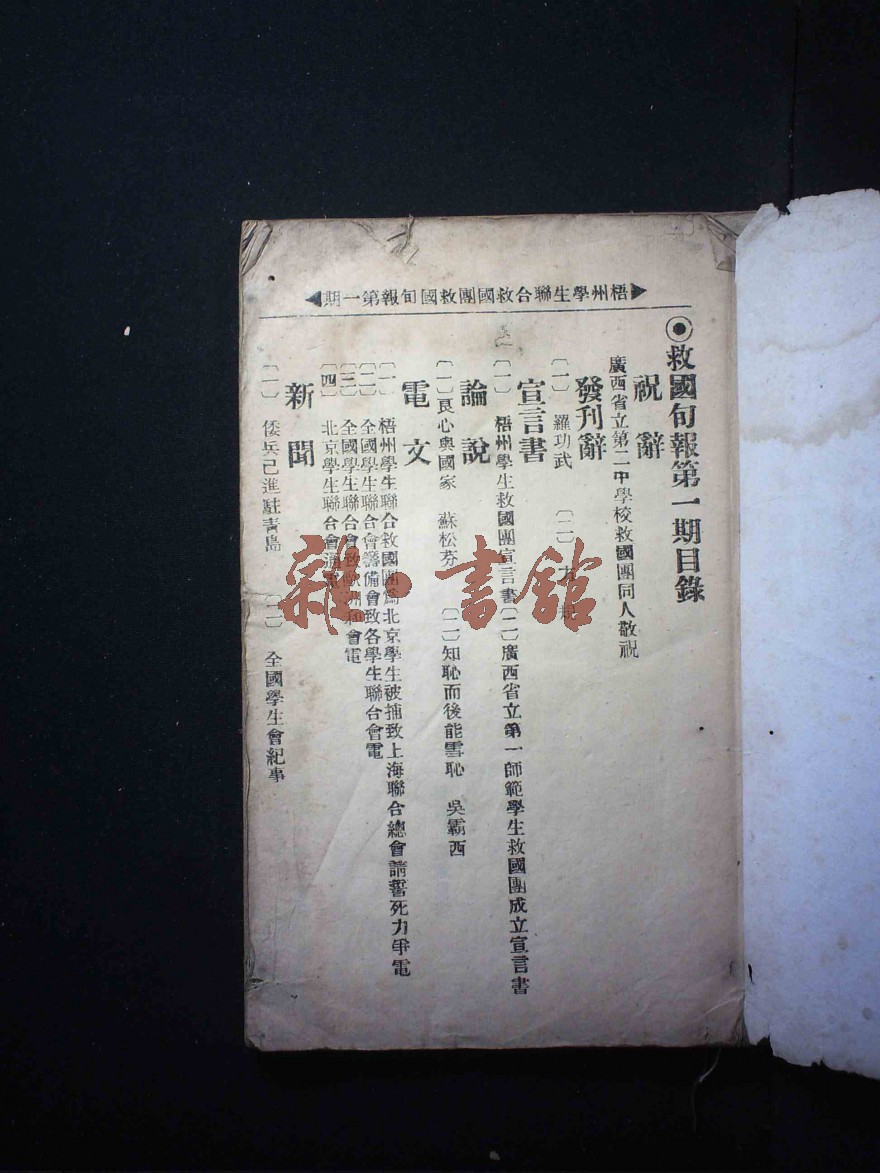 梧州學生聯合救國團救國旬報第一期
救國旬報第一期目錄
祝辭
廣西省立第二中學校救國團同人敬祝
發刊辭
〔一〕羅功武 〔二〕
宣言書
〔一〕梧州學生救國團宣言書〔二〕廣西省立第一師範學生救國團成立宣言書
論說
〔一〕良心與國家 蘇松芬 〔二〕知恥而後能雪恥 吳霸西
電文
〔一〕梧州學生聯合救國團爲北京學生被捕致上海聯合總會請誓死力爭電
〔二〕全國學生聯合會籌備會致各學生聯合會電
〔三〕全國學生聯合會致歐洲和會電
〔四〕北京學生聯合會通電
新聞
〔一〕倭兵已進駐靑島 〔二〕全國學生會紀事
雜·書館